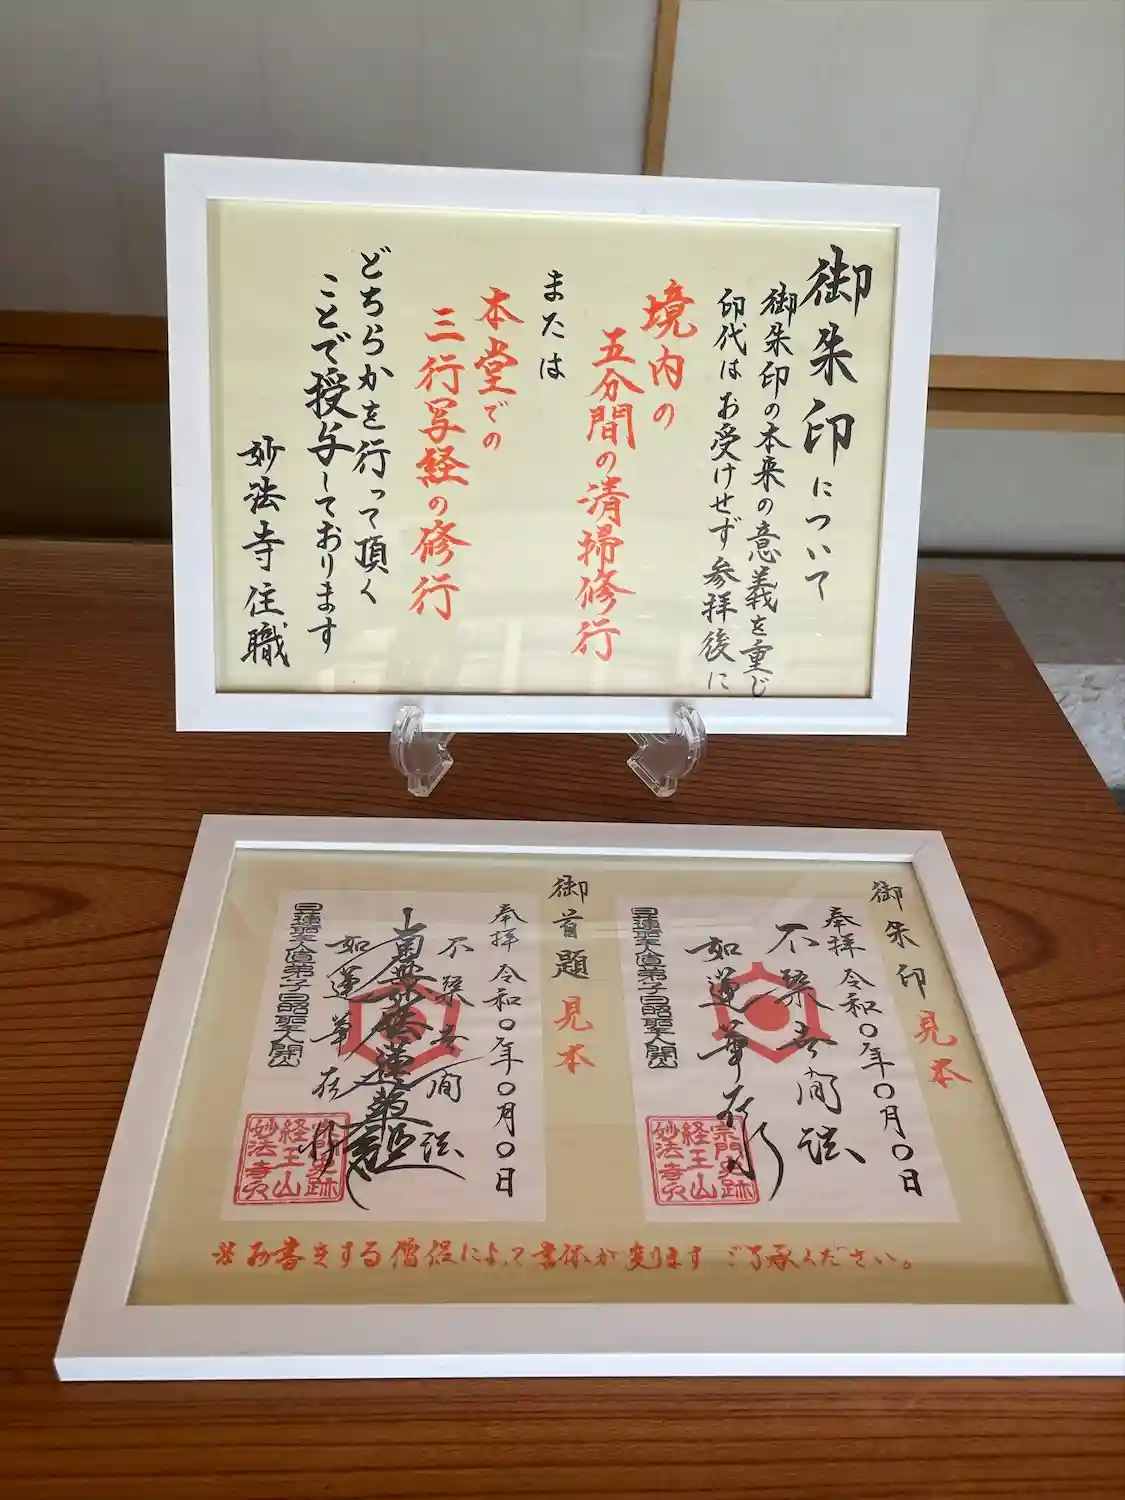 御朱印について
御朱印の本来の意義を重じ
印代はお受けせず参拝後に
境内の
五分間の清掃修行
または
本堂での
三行写経の修行
どちらかを行って頂く
ことで授与しております
妙法寺住職
御朱印見本
奉拝 令和〇年〇月〇日
不染世間法
如蓮華在水
日蓮聖人直弟子日昭聖人開山
宗門史跡
経王山
妙法寺
御首題見本
奉拝 令和〇年〇月〇日
不染世間法
南無妙法蓮華経
如蓮華在水
日蓮聖人直弟子日昭聖人開山
宗門史跡
経王山
妙法寺
※お書きをする僧侶によって書体が変ります ご了承ください。